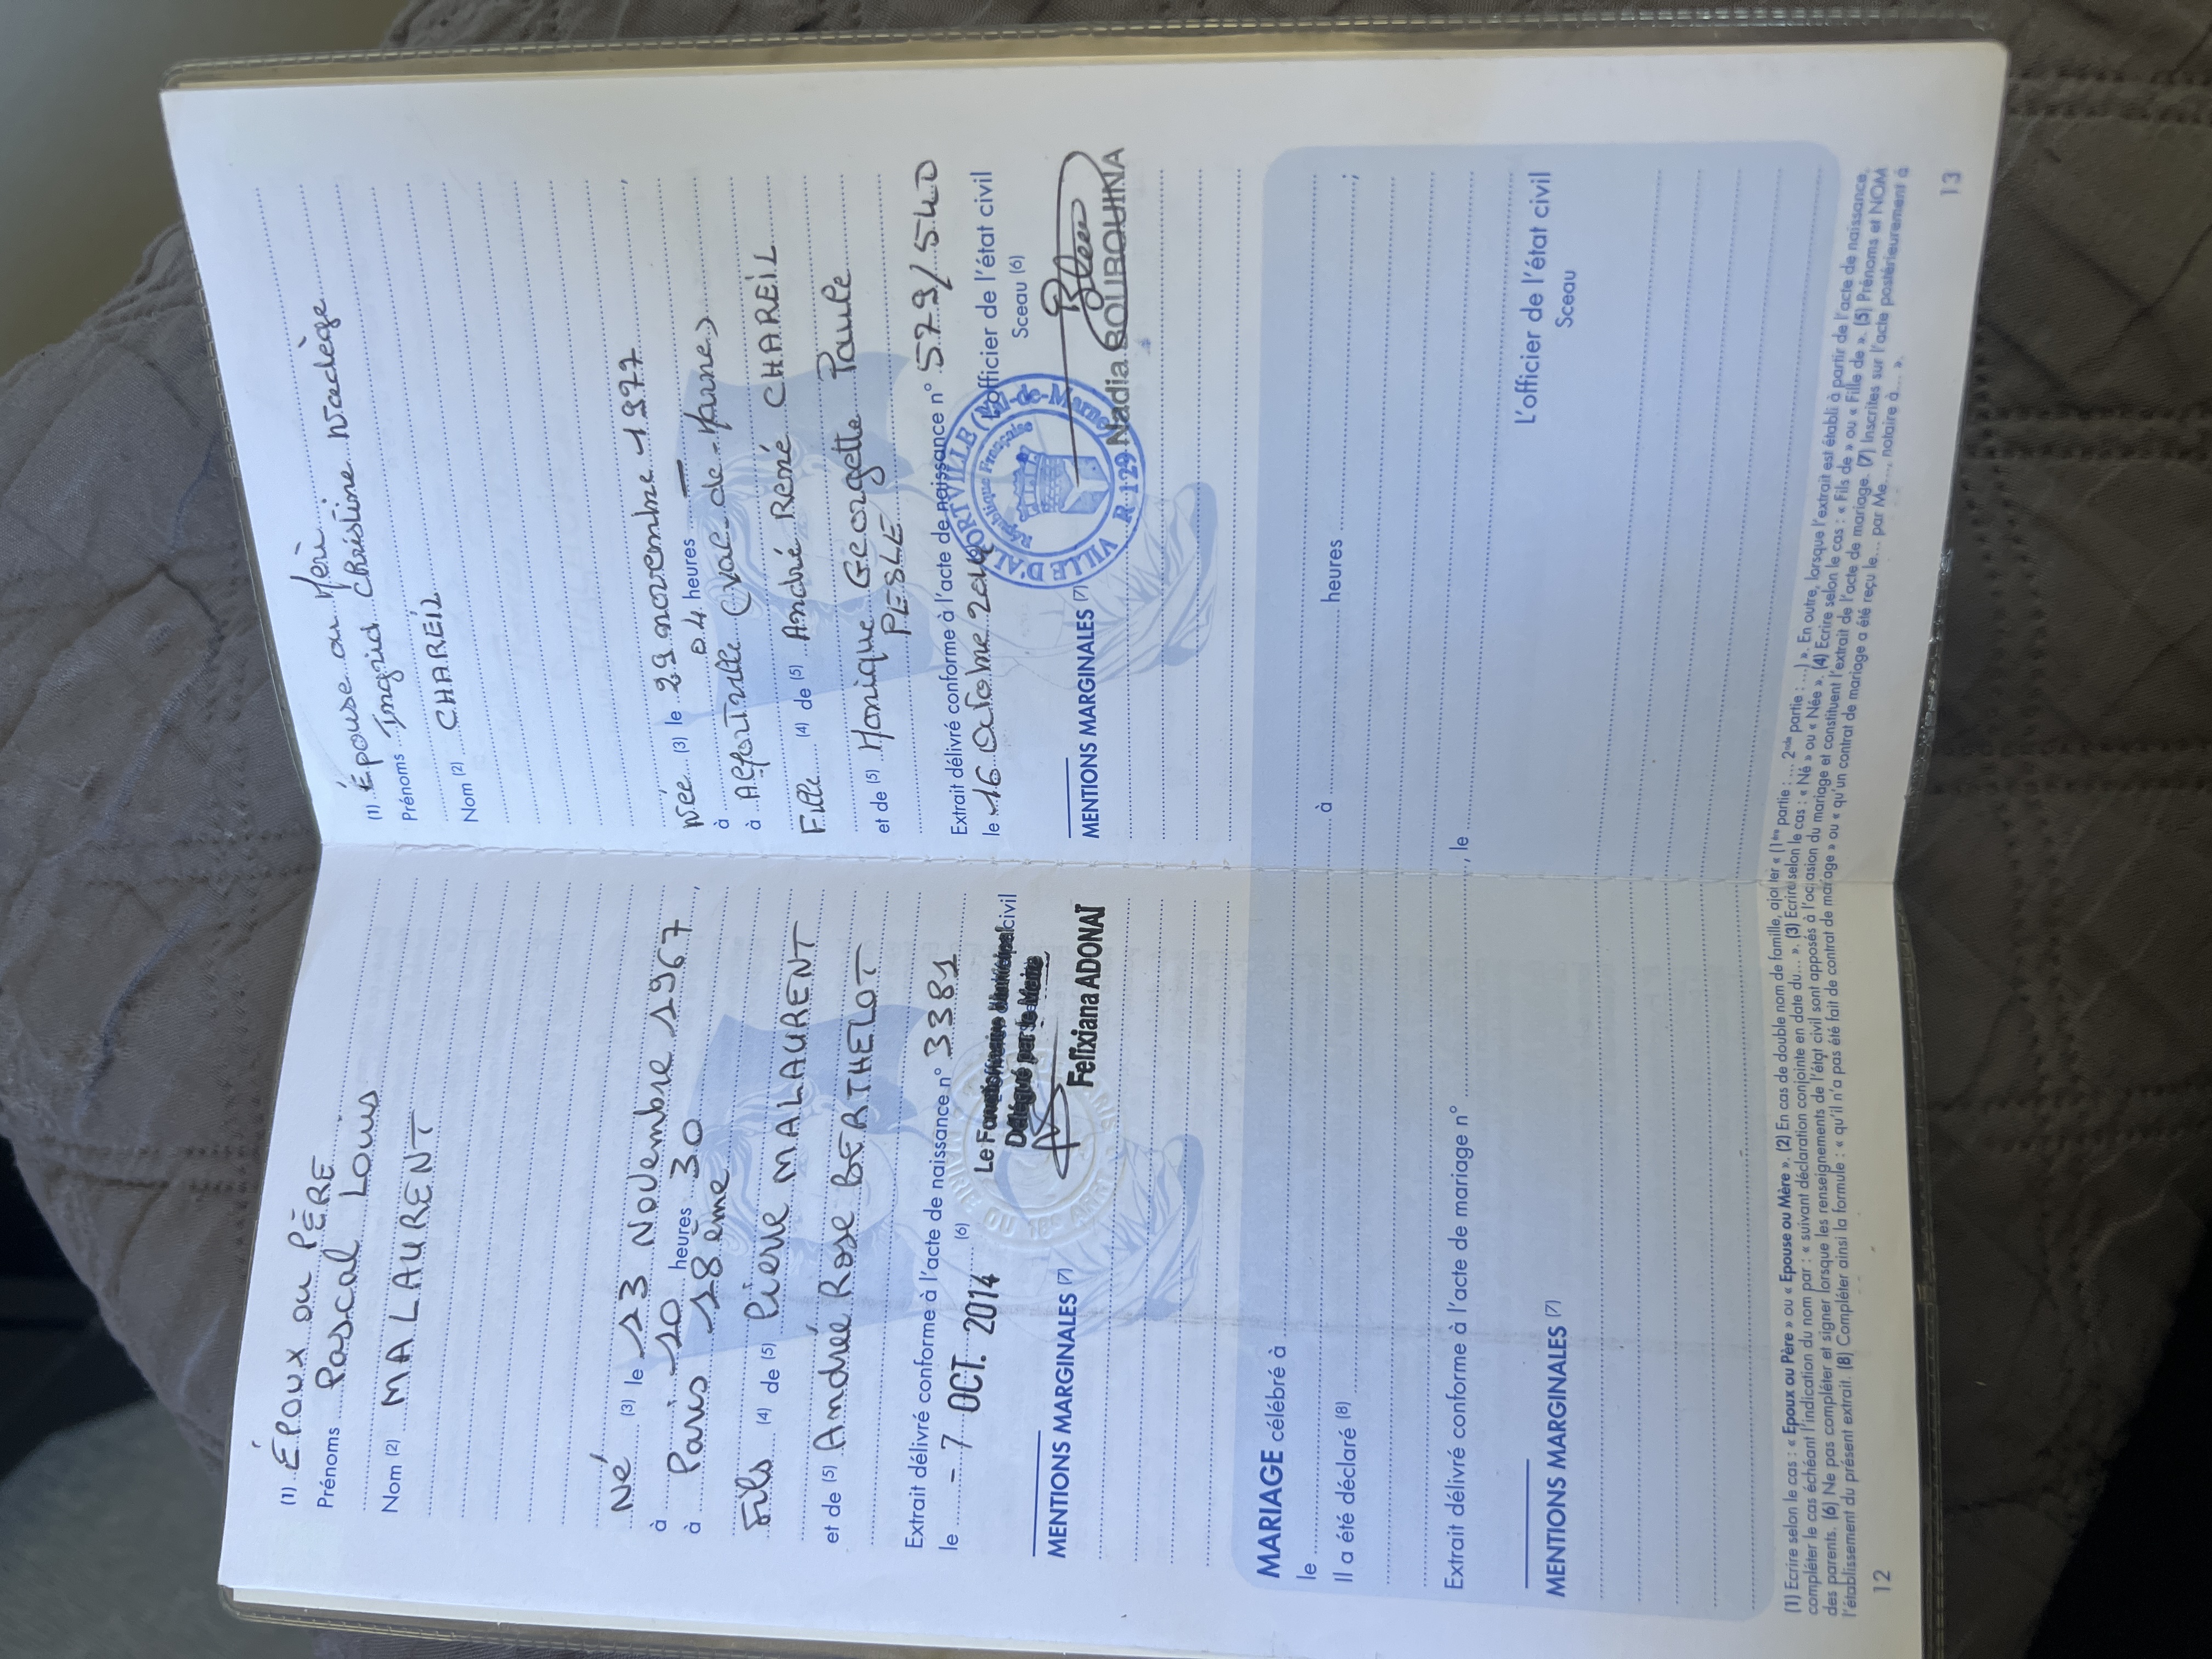 (1) ÉPOUX ou PÈRE
Prénoms Pascal Louis
Nom (2) MALAURENT
Né (3) le 13 Novembre 1967
à 10 heures 30
à Paris 18ème
Fils (4) de (5) Pierre MALAURENT
et de (5) Andrée Rose BERTHELOT
Extrait délivré conforme à l'acte de naissance n° 3381
le - 7 OCT. 2014 (6) Le Fonctionnaire Municipal civil
Délégué par le Maire
Felixiana ADONAÏ
MENTIONS MARGINALES (7)
(1) Épouse ou Mère
Prénoms Ingrid Christine Nadège
Nom (2) CHAREIL
Née (3) le 29 novembre 1977
à 04 heures —
à Alfortville (Val-de-Marne)
Fille (4) de (5) André René CHAREIL
et de (5) Monique Georgette Paule
PESLE
Extrait délivré conforme à l'acte de naissance n° 579/540
le 16 octobre 2014 L'officier de l'état civil
Sceau (6)
VILLE D'ALFORTVILLE (Val-de-Marne)
République Française
R. 129
Nadia BOUBOUINA
MENTIONS MARGINALES (7)
MARIAGE célébré à
le à heures ;
Il a été déclaré (8)
Extrait délivré conforme à l'acte de mariage n° , le
L'officier de l'état civil
Sceau
MENTIONS MARGINALES (7)
(1) Ecrire selon le cas : « Epoux ou Père » ou « Epouse ou Mère ». (2) En cas de double nom de famille, ajouter « (1ère partie : ... 2nde partie : ...) ». En outre, lorsque l'extrait est établi à partir de l'acte de naissance,
compléter le cas échéant l'indication du nom par : « suivant déclaration conjointe en date du... ». (3) Ecrire selon le cas : « Né » ou « Née ». (4) Ecrire selon le cas : « Fils de » ou « Fille de ». (5) Prénoms et NOM
des parents. (6) Ne pas compléter et signer lorsque les renseignements de l'état civil sont apposés à l'occasion du mariage et constituent l'extrait de l'acte de mariage. (7) Inscrites sur l'acte postérieurement à
l'établissement du présent extrait. (8) Compléter ainsi la formule : « qu'il n'a pas été fait de contrat de mariage » ou « qu'un contrat de mariage a été reçu le... par Me..., notaire à... ».
12
13